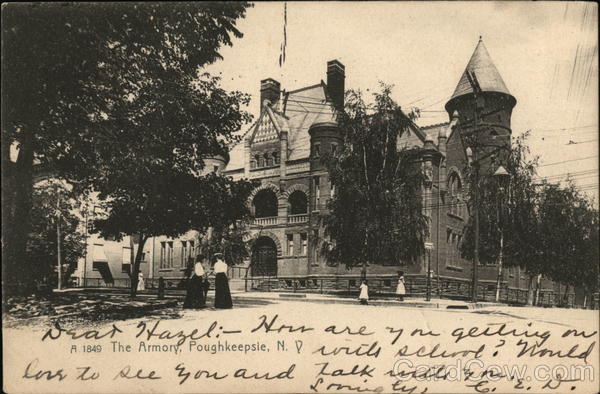 Dear Hazel:- How are you getting on
A. 1849 The Armory, Poughkeepsie, N. Y
with school? Would
love to see you and talk with you.
Lovingly, C. E. D.
CardCow.com